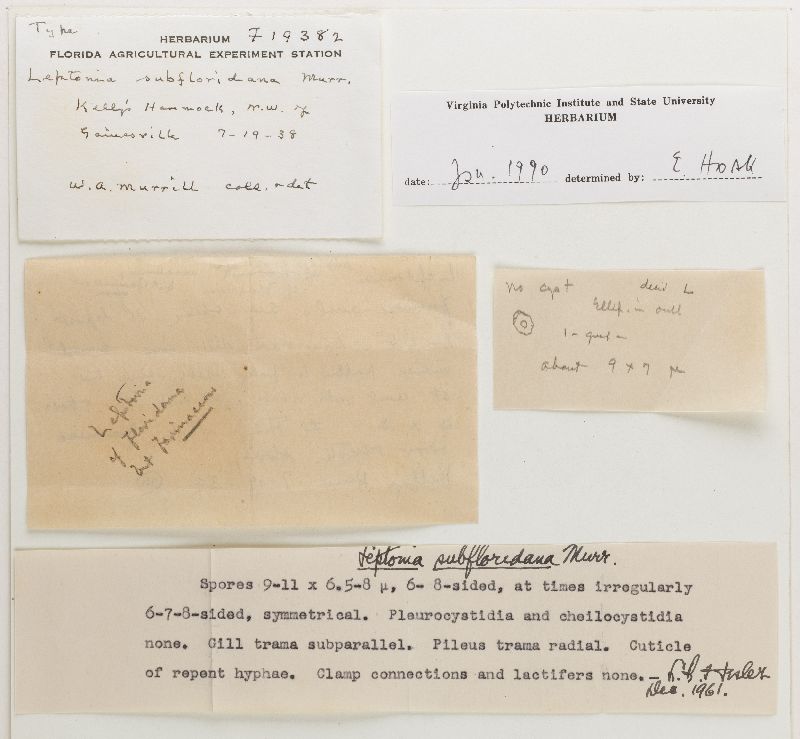 Type
HERBARIUM F19382
FLORIDA AGRICULTURAL EXPERIMENT STATION
Leptonia subfloridana Murr.
Kelly's Hammock, N.W. of
Gainesville 7-19-38
W.A. Murrill coll. & det
Virginia Polytechnic Institute and State University
HERBARIUM
date: Jan. 1990 determined by: E. Horak
Leptonia
cf floridana
but farinaceous
no cyst
Ellip. in outl
1-gut
about 9 x 7 µ
Leptonia subfloridana Murr.
Spores 9-11 x 6.5-8 µ, 6- 8-sided, at times irregularly
6-7-8-sided, symmetrical. Pleurocystidia and cheilocystidia
none. Gill trama subparallel. Pileus trama radial. Cuticle
of repent hyphae. Clamp connections and lactifers none. – L.R. Hesler
Dec. 1961.